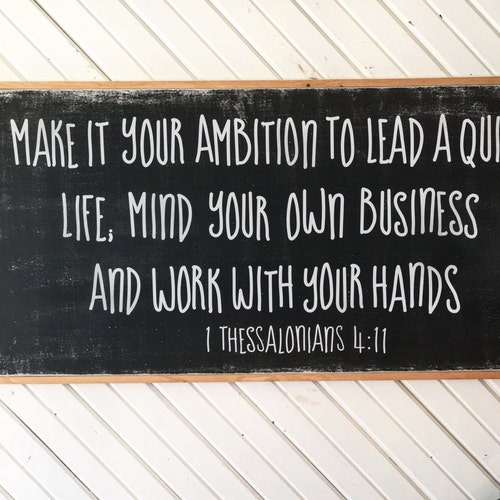 MAKE IT YOUR AMBITION TO LEAD A QUI
LIFE; MIND YOUR OWN BUSINESS
AND WORK WITH YOUR HANDS
1 THESSALONIANS 4:11